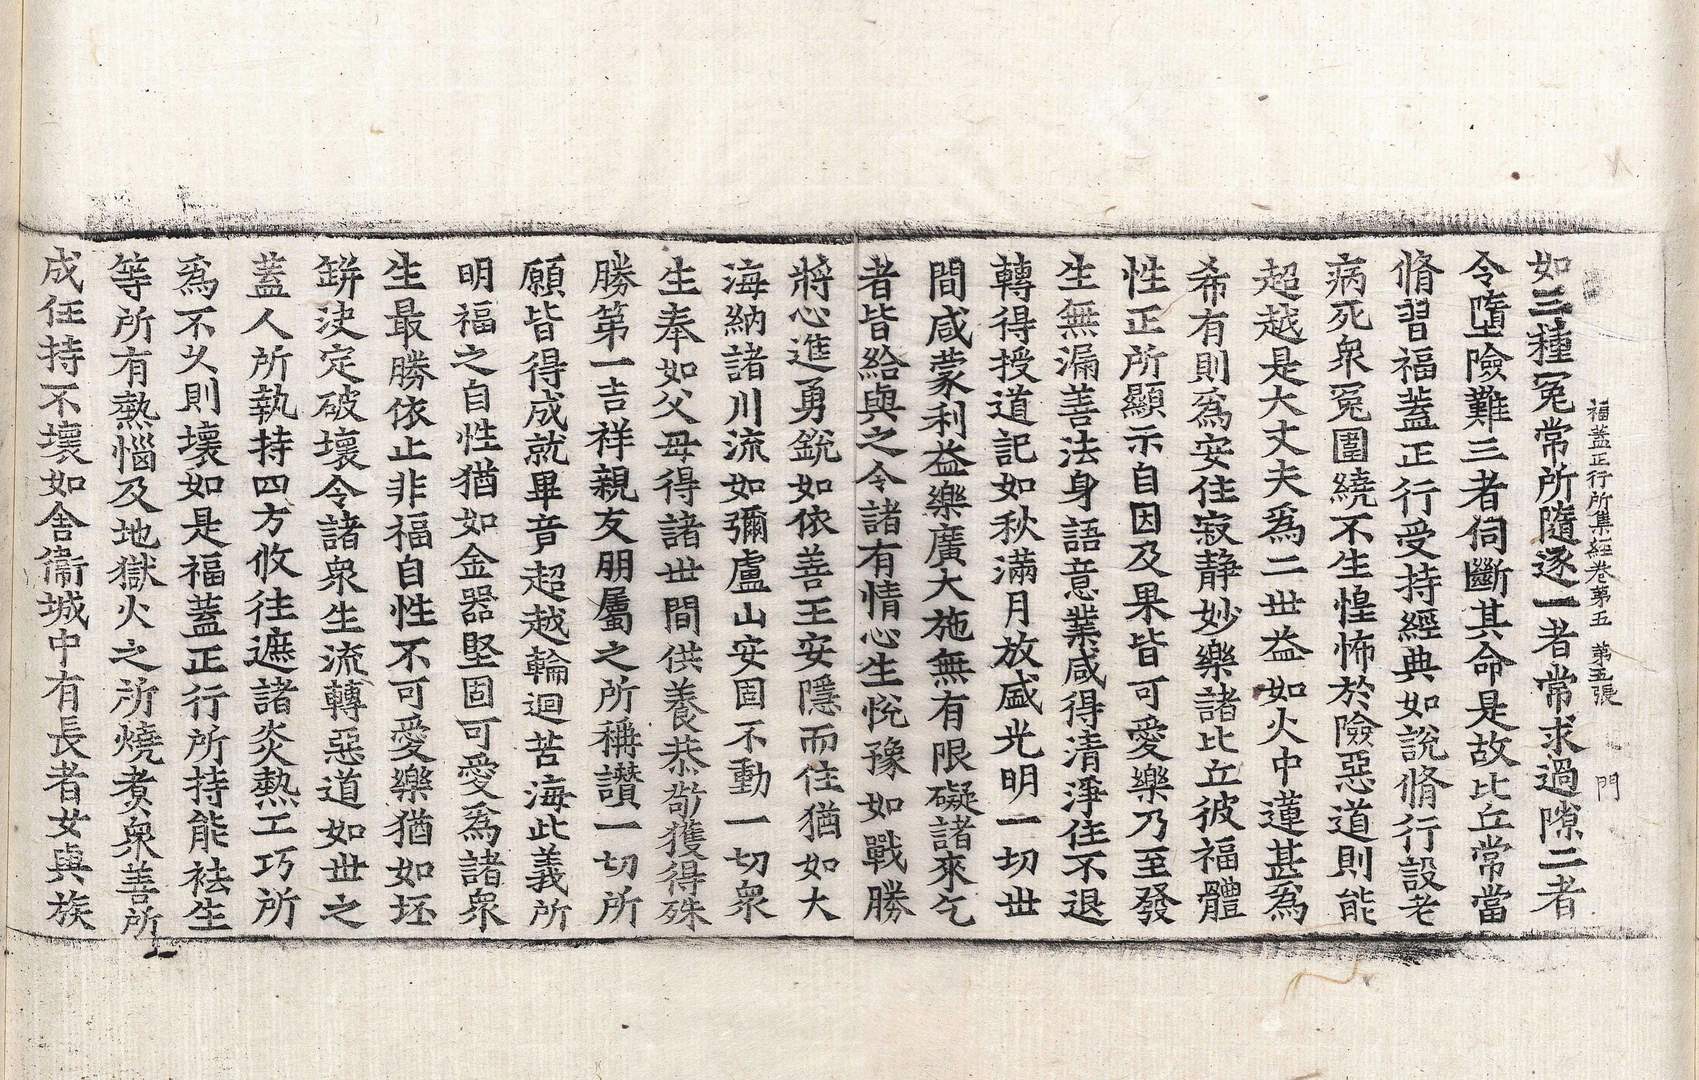 福蓋正行所集經卷第五 第五張 門
如三種冤常所隨逐一者常求過隙二者
令墮險難三者伺斷其命是故比丘常當
脩習福蓋正行受持經典如說脩行設老
病死衆冤圍繞不生惶怖於險惡道則能
超越是大丈夫爲二世益如火中蓮甚爲
希有則爲安住寂静妙樂諸比丘彼福體
性正所顯示自因及果皆可愛樂乃至發
生無漏善法身語意業咸得清淨住不退
轉得授道記如秋滿月放盛光明一切世
間咸蒙利益樂廣大施無有限礙諸來乞
者皆給與之令諸有情心生悅豫如戰勝
將心進勇銳如依善王安隱而住猶如大
海納諸川流如彌盧山安固不動一切衆
生奉如父母得諸世間供養恭敬獲得殊
勝第一吉祥親友朋屬之所稱讃一切所
願皆得成就畢竟超越輪迴苦海此義所
明福之自性猶如金器堅固可愛爲諸衆
生最勝依止非福自性不可愛樂猶如坯
缾決定破壞令諸衆生流轉惡道如世之
蓋人所執持四方攸往遮諸炎熱工巧所
爲不久則壞如是福蓋正行所持能祛生
等所有熱惱及地獄火之所燒煑衆善所
成任持不壞如舍衞城中有長者女與族